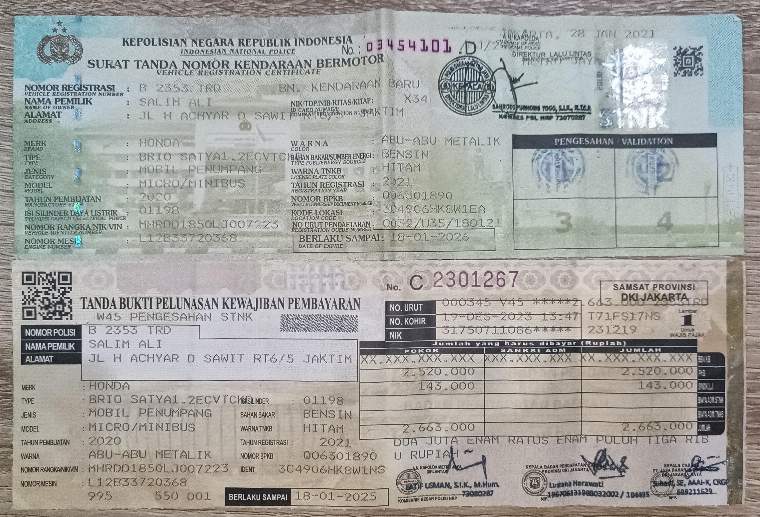 KEPOLISIAN NEGARA REPUBLIK INDONESIA
INDONESIAN NATIONAL POLICE
No. 03454101 .D
SURAT TANDA NOMOR KENDARAAN BERMOTOR
VEHICLE REGISTRATION CERTIFICATE
28 JAN 2021
DIREKTUR LALU LINTAS
NOMOR REGISTRASI : B 2353 TRD BN. KENDARAAN BARU
VEHICLE REGISTRATION NUMBER
NAMA PEMILIK : SALIM ALI NIK/TDP/NIB/KITAS/KITAP: X34
NAME OF OWNER
ALAMAT : JL H ACHYAR D SAWIT JAKTIM
ADDRESS
STNK
MERK : HONDA WARNA : ABU-ABU METALIK
TIPE : BRIO SATYA1.2ECVTCKD BAHAN BAKAR/SUMBER ENERGI : BENSIN
JENIS : MOBIL PENUMPANG WARNA TNKB : HITAM
MODEL : MICRO/MINIBUS TAHUN REGISTRASI : 2021
TAHUN PEMBUATAN : 2020 NOMOR BPKB : Q06301890
ISI SILINDER/DAYA LISTRIK : 01198 KODE LOKASI
NOMOR RANGKA/NIK/VIN : MHRDD1850LJ007223 NO URUT PENDAFTARAN
NOMOR MESIN : L12B33720368 BERLAKU SAMPAI : 18-01-2026
DATE OF EXPIRE
PENGESAHAN - VALIDATION
3 4
No. C 2301267
TANDA BUKTI PELUNASAN KEWAJIBAN PEMBAYARAN
W45 PENGESAHAN STNK
SAMSAT PROVINSI
DKI JAKARTA
NO. URUT : 000345 V45 *****2.663.000
NO. KOHIR : 19-DES-2023 13:47 T71FS17NS
NIK : 31750711086***** 231219
Lembar
1
Untuk
WAJIB PAJAK
NOMOR POLISI : B 2353 TRD
NAMA PEMILIK : SALIM ALI
ALAMAT : JL H ACHYAR D SAWIT RT6/5 JAKTIM
Jumlah yang harus dibayar (Rupiah)
POKOK SANKSI ADM JUMLAH
XX.XXX.XXX.XXX XX.XXX.XXX.XXX XX.XXX.XXX.XXX
2.520.000 2.520.000
143.000 143.000
2.663.000 2.663.000
MERK : HONDA
TYPE : BRIO SATYA1.2ECVTCKD ISI SILINDER : 01198
JENIS : MOBIL PENUMPANG BAHAN BAKAR : BENSIN
MODEL : MICRO/MINIBUS WARNA TNKB : HITAM
TAHUN PEMBUATAN : 2020 TAHUN REGISTRASI : 2021
WARNA : ABU-ABU METALIK NOMOR BPKB : Q06301890
NOMOR RANGKA/NIK/VIN : MHRDD1850LJ007223 IDENT : 3C4906HK8W1NS
NOMOR MESIN : L12B33720368
995 550 001 BERLAKU SAMPAI : 18-01-2025
DUA JUTA ENAM RATUS ENAM PULUH TIGA RIB
U RUPIAH
LATIF USMAN, S.I.K., M.Hum.
73080287